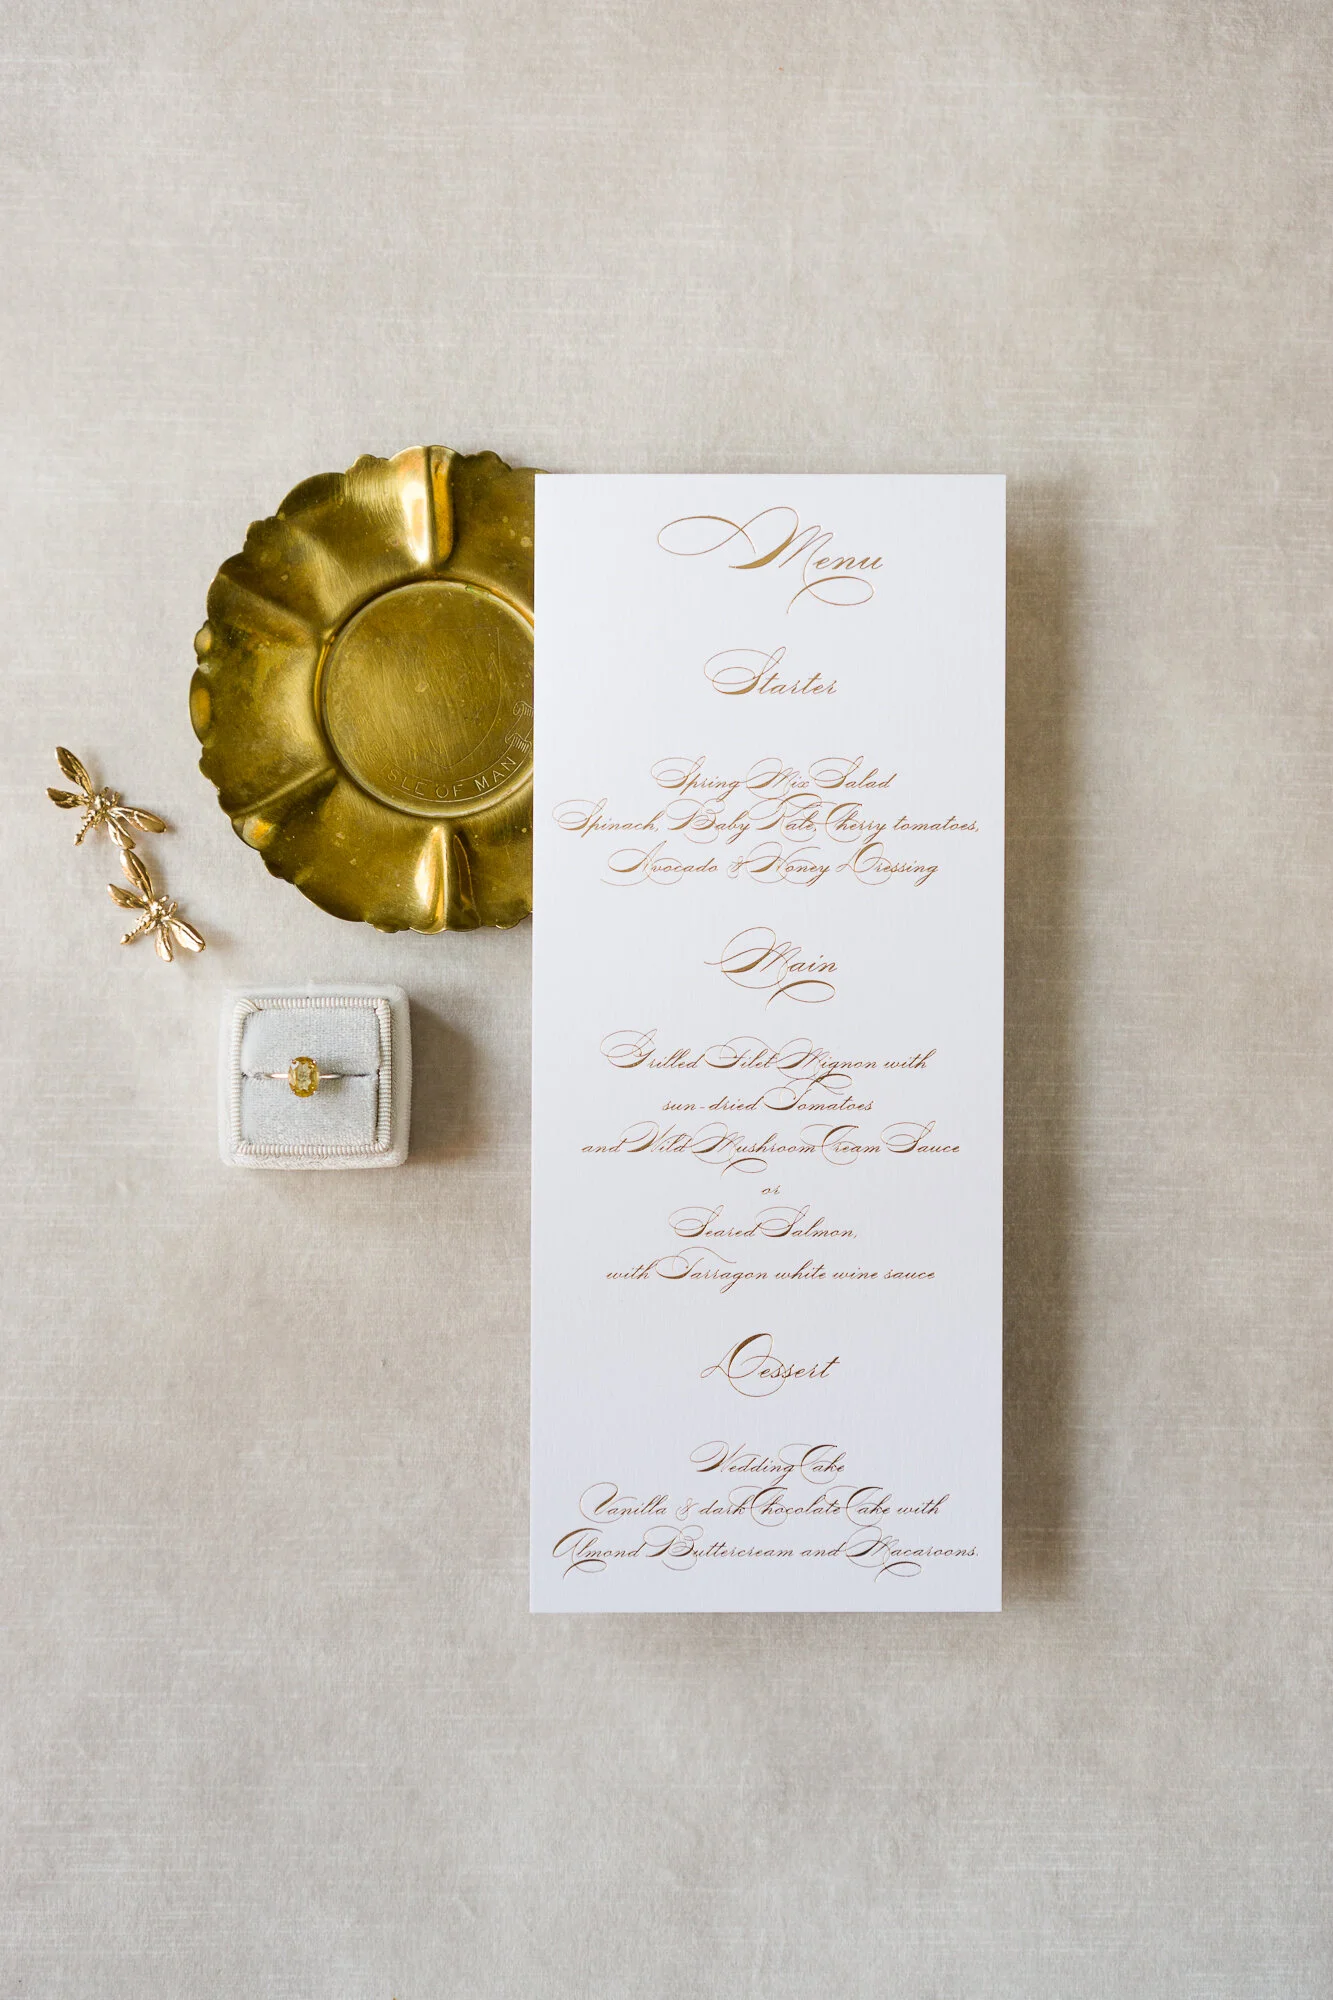 Menu
Starter
Spring Mix Salad
Spinach, Baby Kale, Cherry tomatoes,
Avocado & Honey Dressing
Main
Grilled Filet Mignon with
sun-dried Tomatoes
and Wild Mushroom Cream Sauce
or
Seared Salmon,
with Tarragon white wine sauce
Dessert
Wedding Cake
Vanilla & dark Chocolate Cake with
Almond Buttercream and Macaroons.
SLE OF MAN